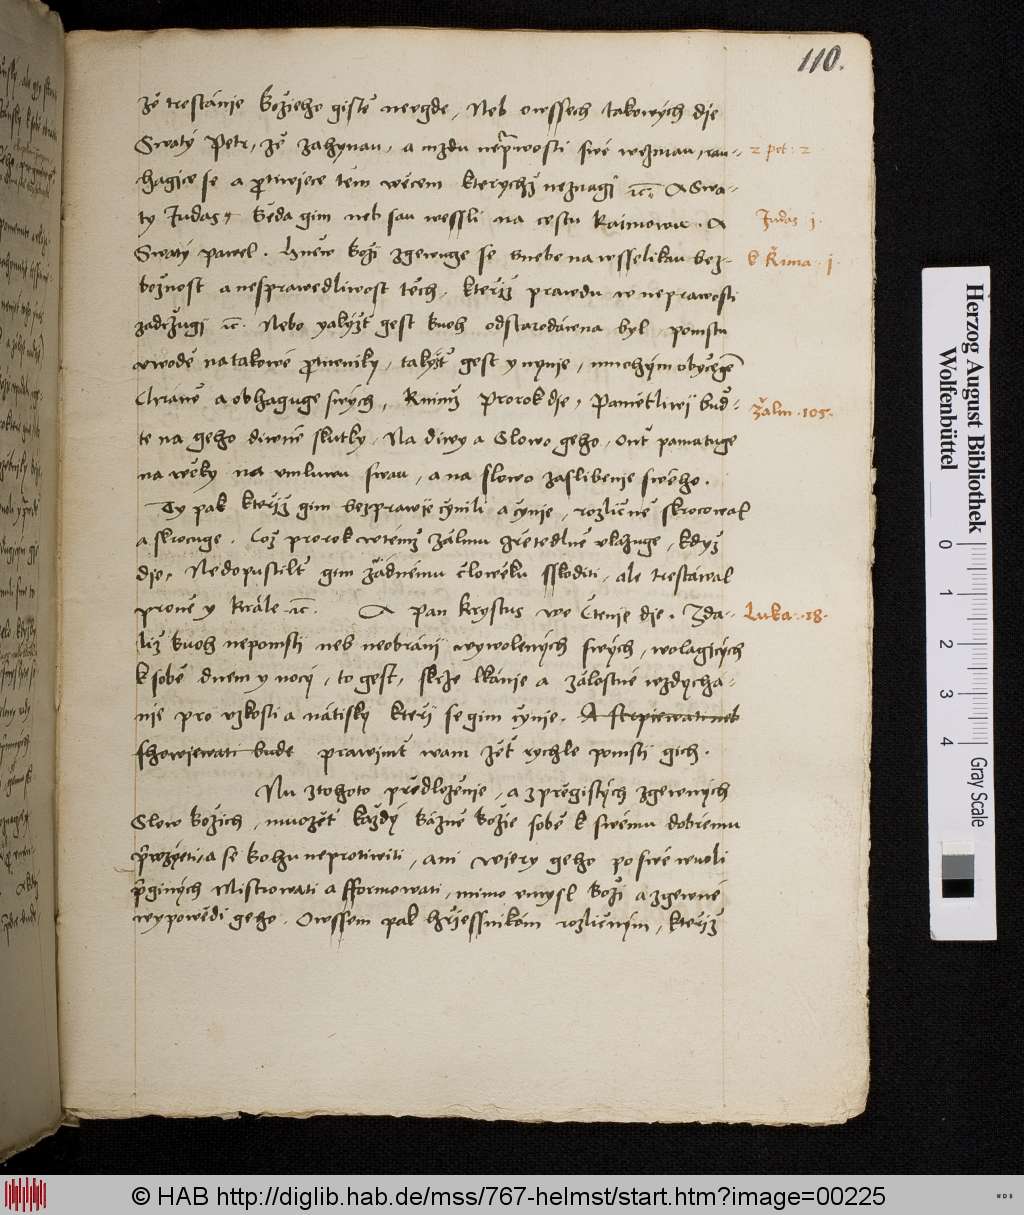 110.
že trestánie Božieho gistě nevgde, Neb owssech takowých die
Swatý Petr, že zahynau, a mzdu neprawosti swé wezmau, rau-
hagice se a protiwiece těm wěcem kterychž neznagi ꝛc. A Swa-
ty Judas, Běda gim neb sau wessli na cestu Kaimowu. A
Swatý pawel. Hněw Boží zgewuge se snebe na wsselikau bez-
božnost a nesprawedliwost těch, kteřiž prawdu w neprawosti
zadržugi ꝛc. Nebo yakýžt gest buoh odstarodáwna byl, pomstu
vwodě na takowé protiwniky, takýžt gest y nynie, mnohým obyčegem
Chráně a obhaguge swých, Knimž Prorok die, Pamětliwi buď-
te na geho diwné skutky, Na diwy a Slowo geho, Ont pamatuge
na wěky na vmluwu swau, a na slowo zaslibenie swého.
Ty pak kteřiž gim bezprawie činili a činie, rozličně skrocowal
a skrocuge. Což prorok wtémž žalmu zřetedlně vkazuge, když
die, Nedopustilt gim žádnému člowěku sskoditi, ale trestáwal
proně y Krále ꝛc. A pan Krystus we Čtenie die. Zda-
liž buoh nepomsti neb neobrání wywolených swých, wolagicých
k sobě dnem y nocý, to gest, skrze lkánie a žalostné wzdycha-
nie pro vzkosti a nátisky kteří se gim činie. A strpiewati neb
showiewati bude prawimt wam žet rychle pomstí gich.
Nu ztohoto předloženie, a z přegistých zgewných
Slow Božích, muožet každý Bázně Božie sobě k swému dobrému
přiwzýeti, a se Bohu neprotiwiti, ani wiery geho po swé wuoli
při giných Mistrowati a fformowati, mimo vmysl Boží a zgewné
wypowědi geho. Owssem pak hřiessnikóm rozličným, kteřiž
2 pet: 2
Judas j.
k Řima. j
Žalm. 105.
Luka. 18.
Herzog August Bibliothek
Wolfenbüttel
0
1
2
3
4
Gray Scale
© HAB http://diglib.hab.de/mss/767-helmst/start.htm?image=00225